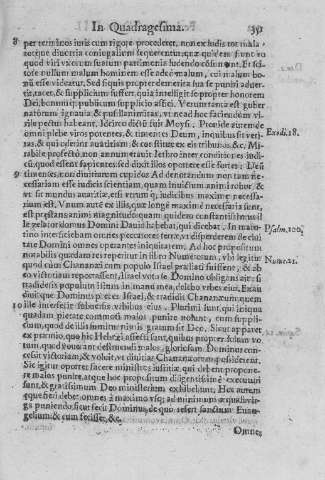 In Quadragesima. 351
8 per terminos iuris cum rigore procederet, non ex ludis tot mala,
totque diuortia coniugalium sequerentur,
quod viri viscerum suorum patrimonia ludendo
tote nullum malum hominem esse adeò malum, cui malum bo-
nū esse videatur. Sed siquis propter demerita sua se puniri aduer-
tit, tacet, & supplicium suffert, quia intelligit se propter honorem
Dei, bonumq; publicum supplicio affici. Verum tanta est guber
natorum ignauia, & pusillanimitas, vt
rile pectus habeant. Idcirco dixit sui Moysi. Prouide autem de
omni plebe viros potentes, & timentes Deum, inquibus sit veri-
tas, & qui oderint auaritiam, & constitue ex eis tribunos, &c. Mi-
rabile profectò, non annumerauit Iethro inter conditiones iudi-
cū, quod essent sapientes, sed dixit illos oportere esse fortes: Deū
9 timentes, non diuitiarum cupidos. Ad denotandum non tam ne-
cessariam esse iudicis scientiam, quam inuictum animi robur, &
vt sit mundus ab auaritia, etsi verum q; iudicibus maxime necessa-
rium est. Vnum aute ex illis, quæ longè maximè necessaria sunt,
est præstans animi magnitudo, quam quidem constantissimus il
le gelator domus Domini Dauid habebat, qui dicebat, In matu-
tino interficiebam omnes peccatores terræ, vt disperderem de ciui
tate Domini omnes operantes iniquitatem. Ad hoc propositum
notabilis quædam res reperitur in libro Numerorum, vbi legitur
quod cum Chananæi cum populo Israel præliati fuissent, & ab
eo victoriam reportassent, Israel voto se Domino obligans ait: si
tradideris populum istum in manu mea, delebo vrbes eius, Exau
diuitque Dominus preces Israel, & tradidit Chananæum, quem
10 ille interfecit subuersis vrbibus eius. Plurimi sunt, qui iniqua
quadam pietate commoti malos punire nolunt, cum supplici-
um, quod de illis sumitur nimis gratum sit Deo. Sicut apparet
ex præmio, quo hic Hebræi affecti sunt, quibus propter solum vo-
tum, quod vouerant destruendi malos, gloriosam Dominus con-
cessit victoriam, & voluit, vt diuitias Chananæorum possiderent.
Sic igitur oportet facere ministros iustitiæ, qui debent propone-
re malos punire, atque hoc propositum diligentissimè executuri
sunt, & gratissimum Deo ministerium exhibebunt. Hoc autem
quæ fieri debet omnes à maximo vsq; ad minimum
gs puniendo, sicut fecit Dominus, de quo refert sanctum Euan-
gelium, & cum fecisset, &c.
Omnes
Exodi. 18.
Psalm. 100.
Nume. 21.